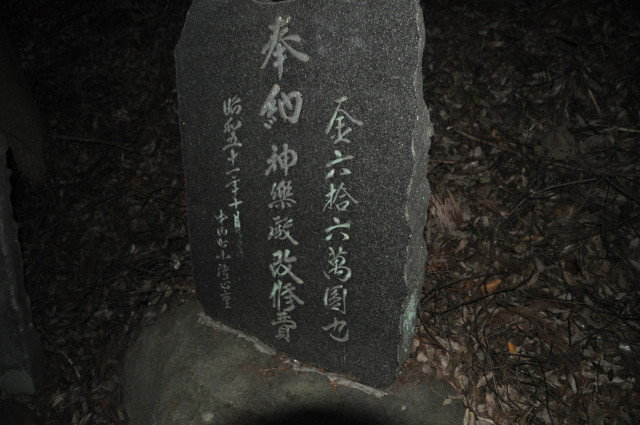 金六拾六萬圓也
奉納 神樂殿改修費
昭和五十一年十月